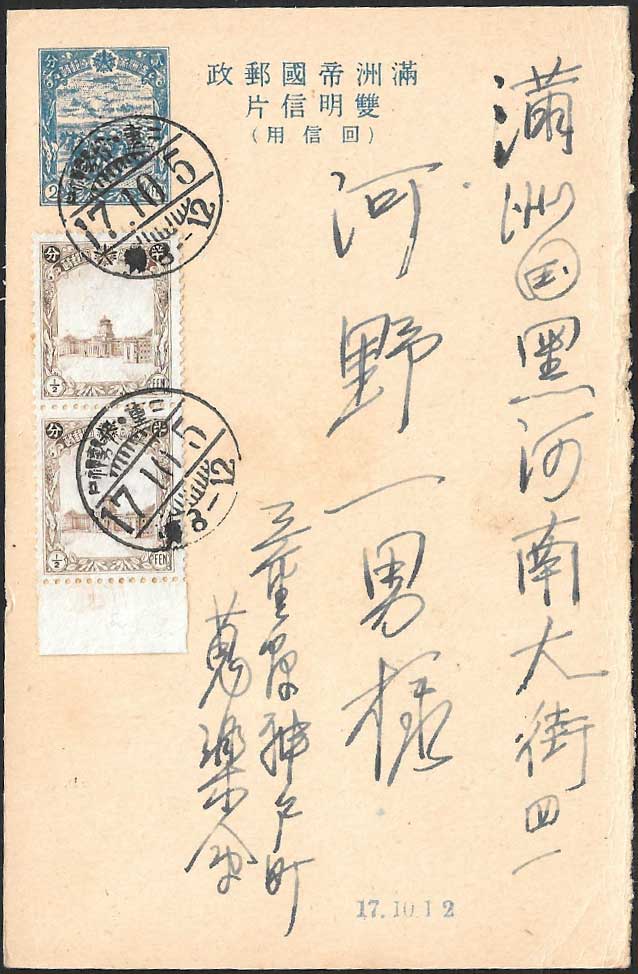 滿洲帝國郵政
雙明信片
(回信用)
滿洲国黑河南大街四一
河野一男様
三重県神戸町
萬楽
17.10.5
8-12
分
½
FEN
17.10.5
8-12
分
½
FEN
17.10.12